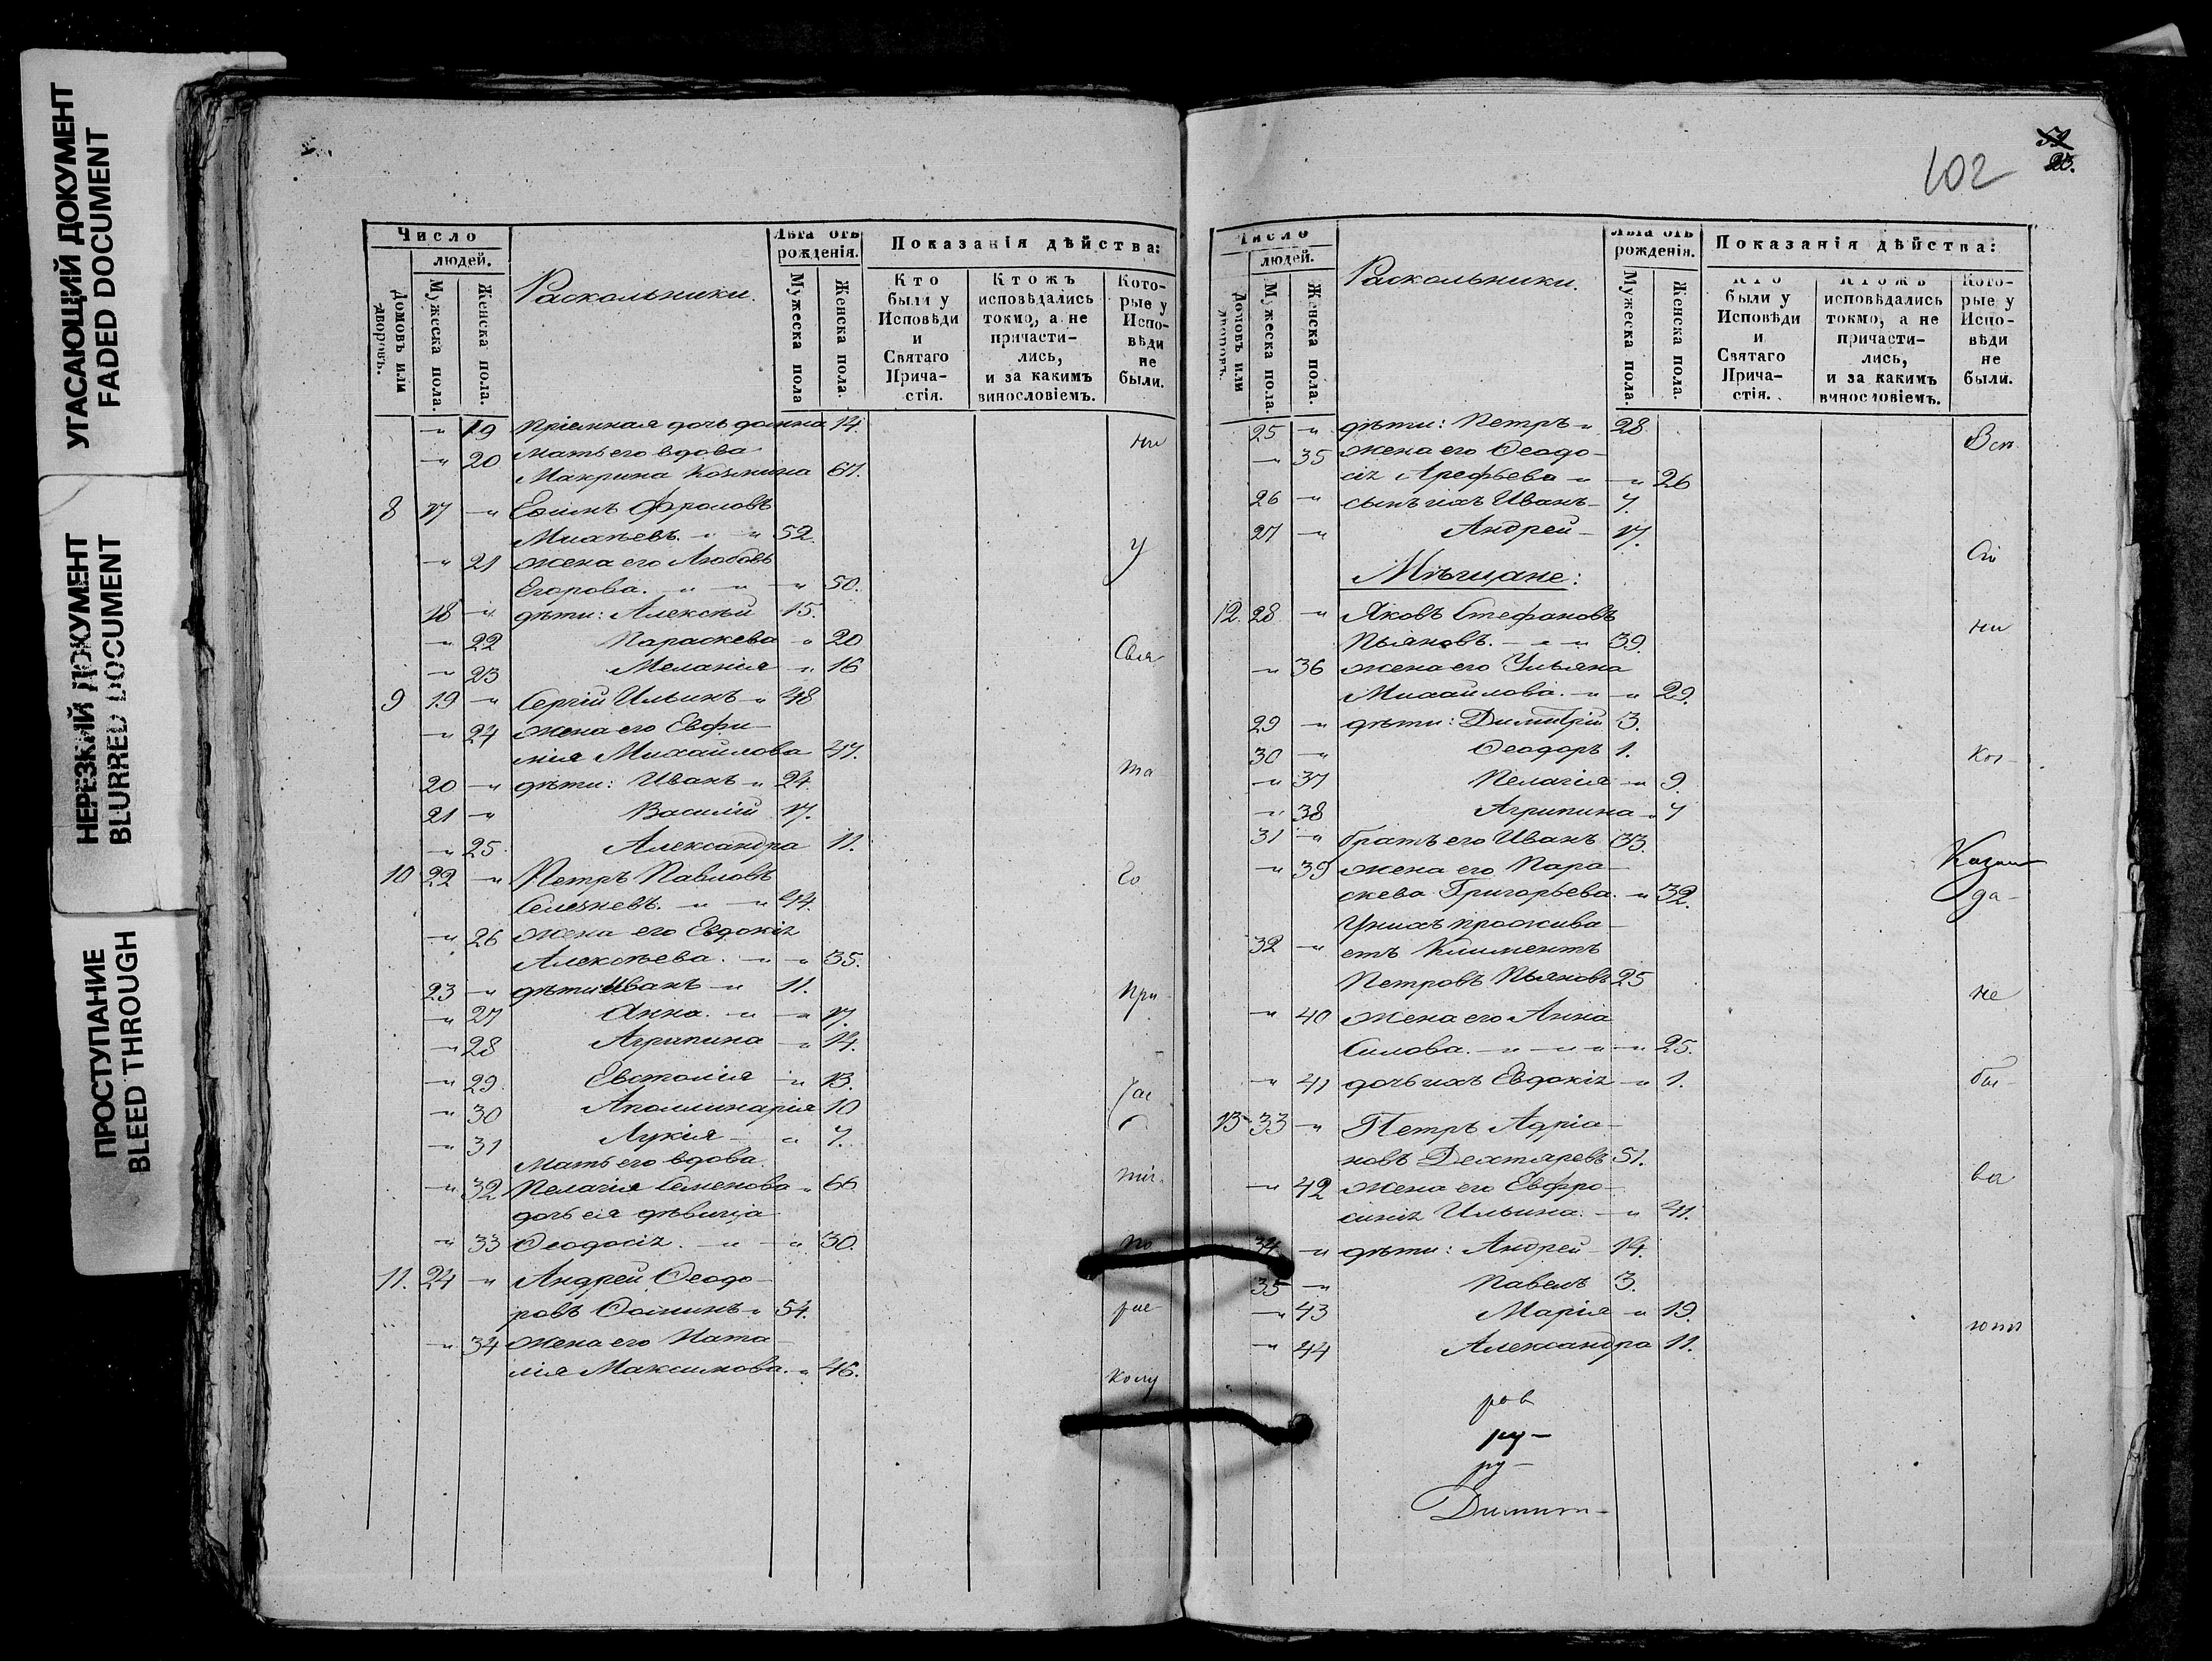 УГАСАЮЩИЙ ДОКУМЕНТ
FADED DOCUMENT
НЕРЕЗКИЙ ДОКУМЕНТ
BLURRED DOCUMENT
ПРОСТУПАНИЕ
BLEED THROUGH
Число
людей.
Домовъ или дворовъ.
Мужеска пола.
Женска пола.
Раскольники.
Лѣта отъ рожденія.
Мужеска пола
Женска пола.
Показанія дѣйства:
Кто были у Исповѣди и Святаго Прича-стія.
Ктожъ исповѣдались токмо, а не причасти-лись, и за какимъ винословіемъ.
Кото-рые у Испо-вѣди не были.
" 19 Пріемная дочь Домна 14.
ни
" 20 мать его вдова
Макрина Козмина 67.
8 17 " Ѳаминъ Фроловъ
Михѣевъ. " " 52.
у
" 21 жена его Любовь
Егорова. " " " 50.
18 " дѣти: Алексѣй 15.
" 22 Параскева " 20
Свя
" 23 Меланія " 16
9 19 " Сергій Ильинъ " 48
" 24 жена его Евфи-
мія Михайлова 47.
та
20 " дѣти: Иванъ " 24.
21 " Василій 17.
" 25. Александра 11.
10 22 " Петръ Павловъ
го
Селезневъ. " " 44.
" 26 жена его Евдокія
Алексѣева. " " 35.
23 " дѣти: Иванъ " 11.
При
" 27 Анна. " " 17.
" 28 Агрипина " 14.
" 29. Евстолія " 13.
" 30 Аполлинарія 10
" 31 Лукія " 7.
Мать его вдова
" 32 Пелагія Семенова " 66
дочь ея дѣвица
" 33 Ѳеодосія. " " 30.
по
11. 24 " Андрей Ѳеодо-
ровъ Ѳоминъ " 54.
рас
" 34 жена его Ната-
лія Максимова. " 46.
колу
102
23.
Число
людей.
Домовъ или дворовъ.
Мужеска пола.
Женска пола.
Раскольники.
Лѣта отъ рожденія.
Мужеска пола.
Женска пола.
Показанія дѣйства:
Кто были у Исповѣди и Святаго Прича-стія.
Ктожъ исповѣдались токмо, а не причасти-лись, и за какимъ винословіемъ.
Кото-рые у Испо-вѣди не были.
25 " дѣти: Петръ " 28
" 35 жена его Ѳеодо-
сія Арефьева " " 26
26 " сынъ ихъ Иванъ - 7.
27 " Андрей - 17.
Мѣщане:
12. 28 " Яковъ Стефановъ
ни
Пьяновъ. " " 39.
" 36 жена его Ульяна
Михаилова. " " 29.
29 " дѣти: Димитрій 3.
30 " Ѳеодоръ 1.
" 37 Пелагія " 9.
ког-
" 38 Агрипина " 7
31 " братъ его Иванъ 33.
" 39 жена его Пара-
скева Григорьева. " 32.
да-
У нихъ прожива-
32 " етъ Климентъ
Петровъ Пьяновъ 25
не
" 40 жена его Анна
Силова. " " " " 25.
" 41 дочь ихъ Евдокія " 1.
бы-
13 33 " Петръ Адріа-
новъ Дехтяревъ 51.
" 42 жена его Евфро-
ва
синія Ильина. " 41.
34 " дѣти: Андрей 14.
35 " Павелъ 3.
" 43 Марія " 19.
ютъ
" 44 Александра 11.
ров
ру-
ру-
Димит-